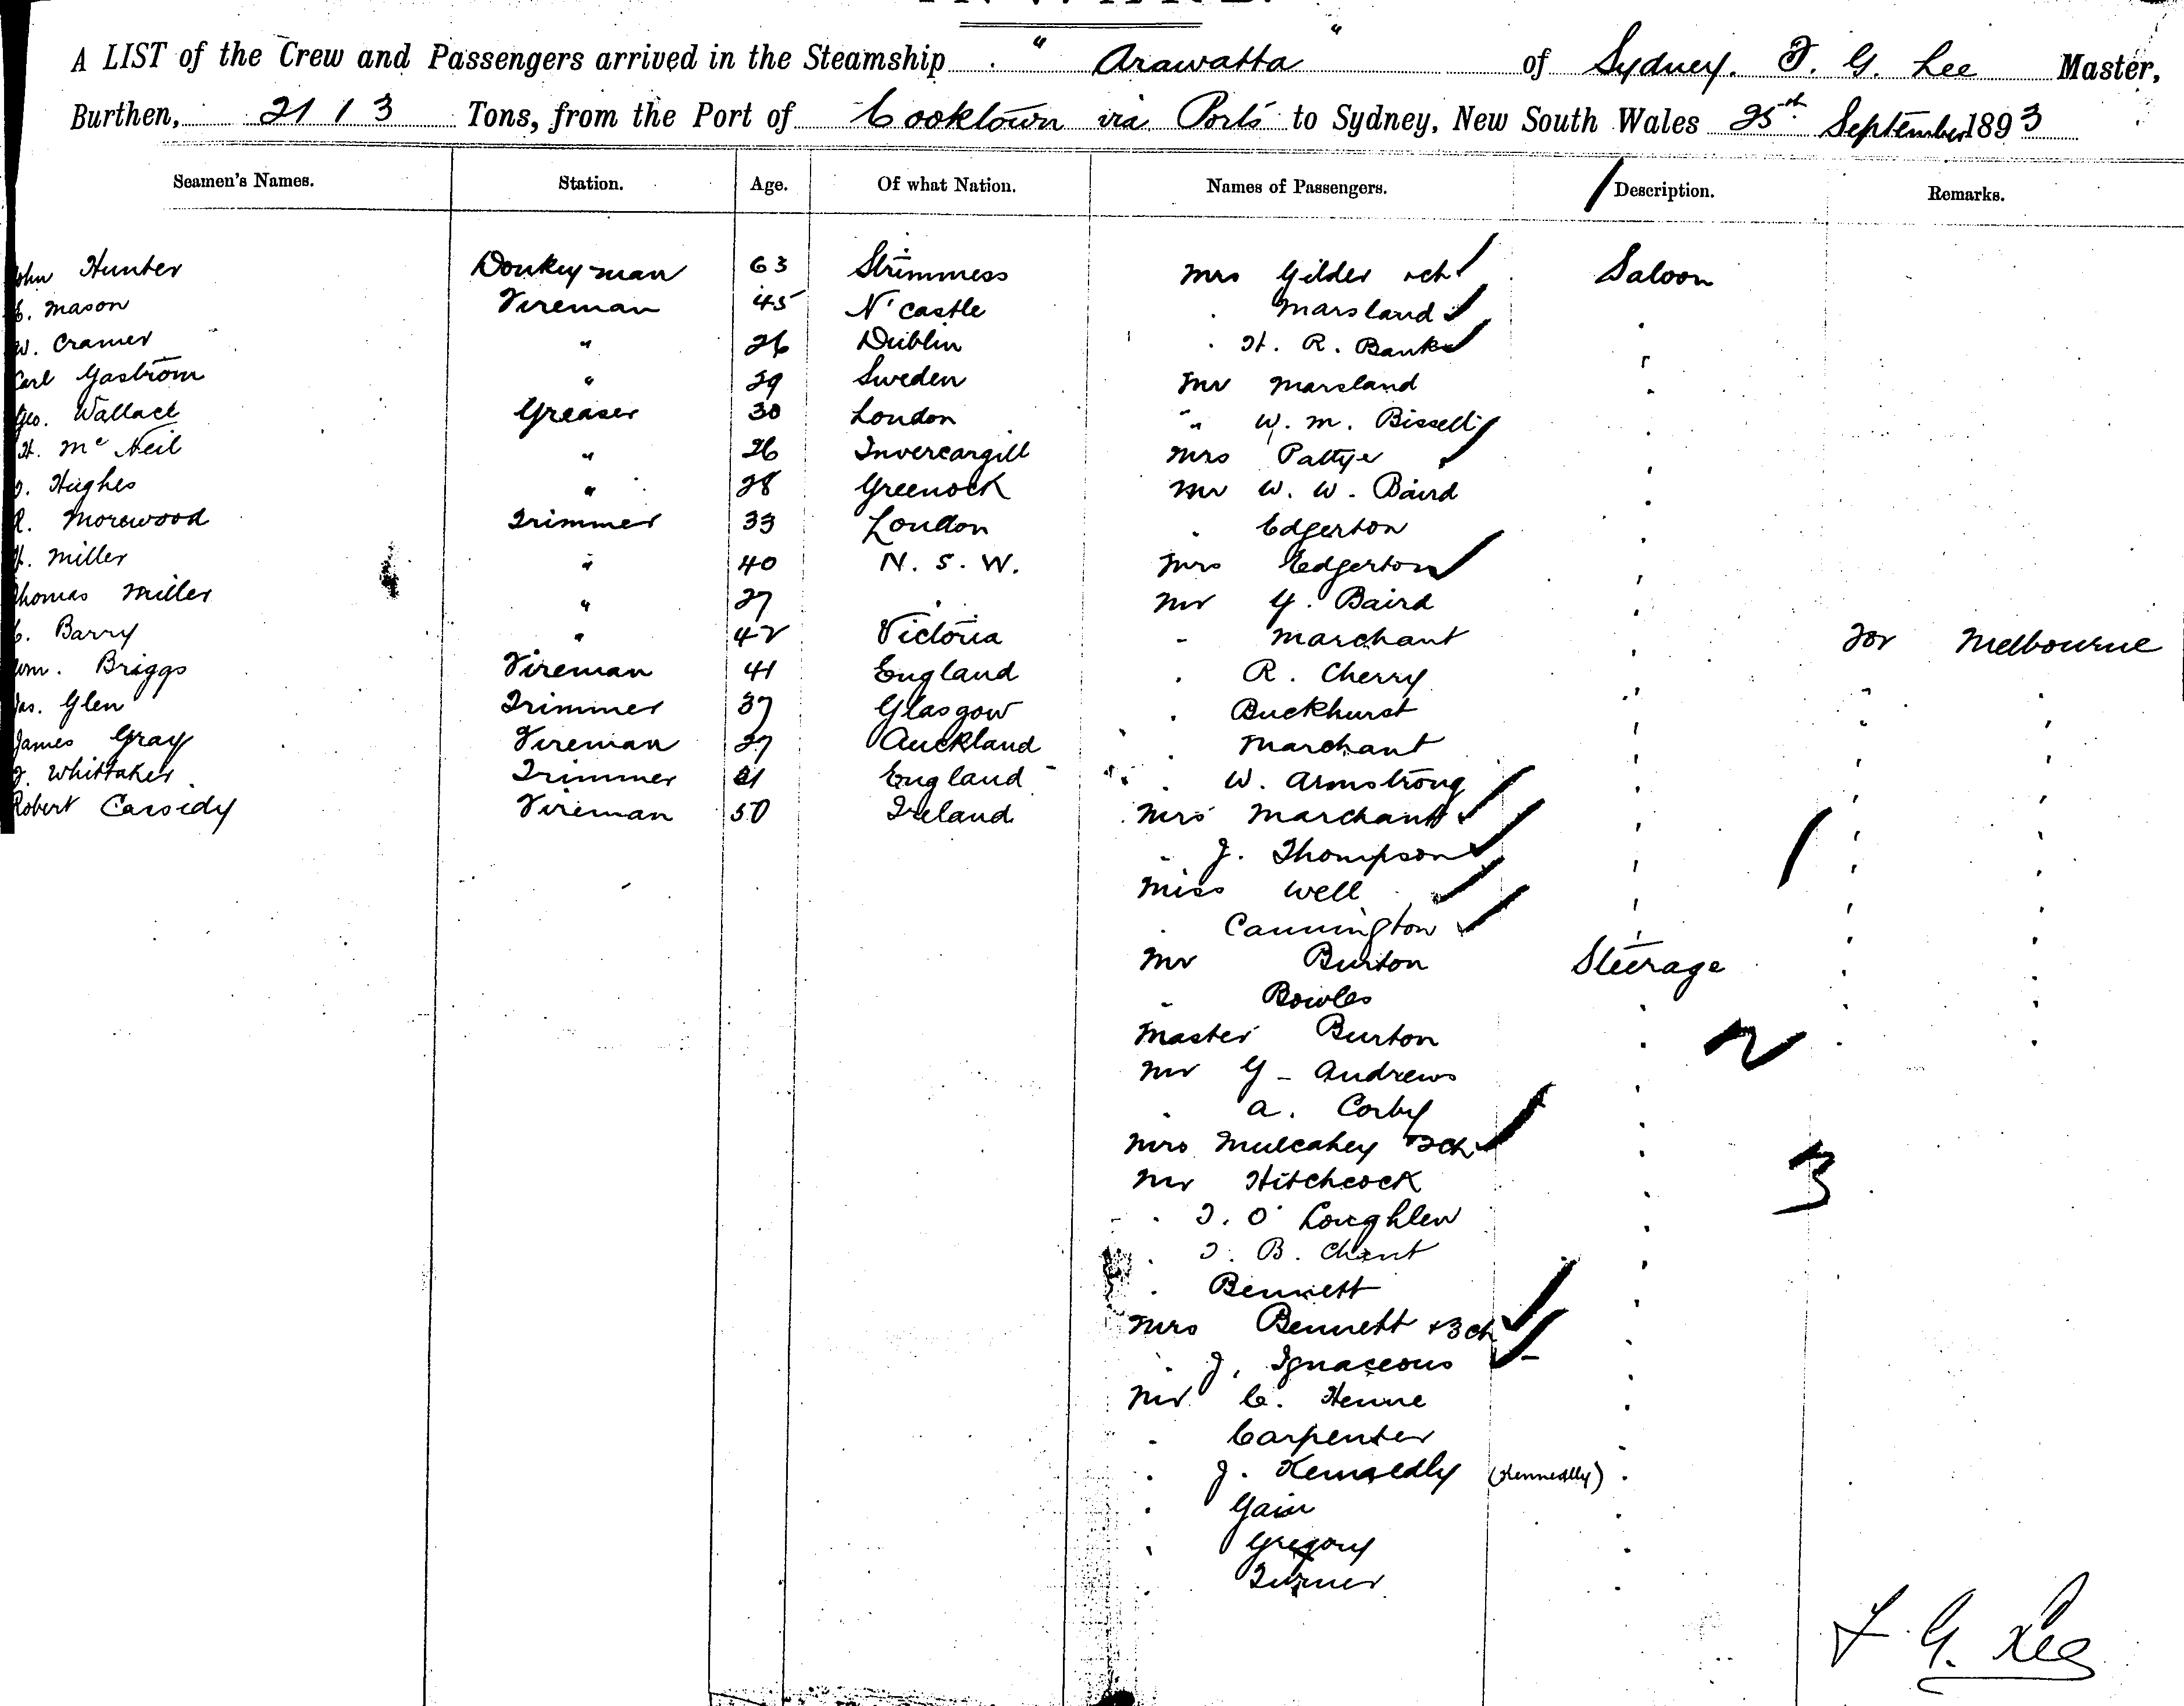 A LIST of the Crew and Passengers arrived in the Steamship " Arawatta " of Sydney. F. G. Lee Master,
Burthen, 2113 Tons, from the Port of Cooktown via Ports to Sydney, New South Wales 25th September 1893
Seamen's Names. Station. Age. Of what Nation. Names of Passengers. Description. Remarks.
John Hunter Donkey-man 63 Mrs Gilder + ch Saloon
Mason Fireman 45 N'castle " Marsland "
W. Cramer " 26 Dublin " H. R. Banks "
Carl Gastrom " 29 Sweden Mr Marsland "
Geo. Wallace Greaser 30 London " W. M. Bissell "
H. McNeil " 26 Invercargill Mrs "
Hughes " 28 Greenock Mr W. W. Baird "
R. Morewood Trimmer 33 London " Edgerton "
H. Miller " 40 N. S. W. Mrs Edgerton "
Thomas Miller " 27 " Mr G. Baird "
C. Barry " 42 Victoria " Marchant " For Melbourne
Wm. Briggs Fireman 41 England " R. Cherry " " "
Jas. Glen Trimmer 37 Glasgow " Buckhurst " " "
James Gray Fireman 27 Auckland " Marchant " " "
Whittaker Trimmer 21 England " W. Armstrong " " "
Robert Cassidy Fireman 50 Ireland Mrs Marchant " " "
" J. Thompson " " "
Miss Well " " "
" Cannington " " "
Mr Burton Steerage " "
" Bowles " " "
Master Burton " 2 " "
Mr G. Andrews "
" A. Corby "
Mrs Mulcahey + 2 ch "
Mr Hitchcock " 3
" T. O'Loughlen "
" T. B. Chant "
" Bennett "
Mrs Bennett + 3 ch "
" J. Ignaceous "
Mr C. Henne "
" Carpenter "
" J. Kennedly (Kennedlly) "
" Gain "
" Gregory "
" Turner "
F. G. Lee